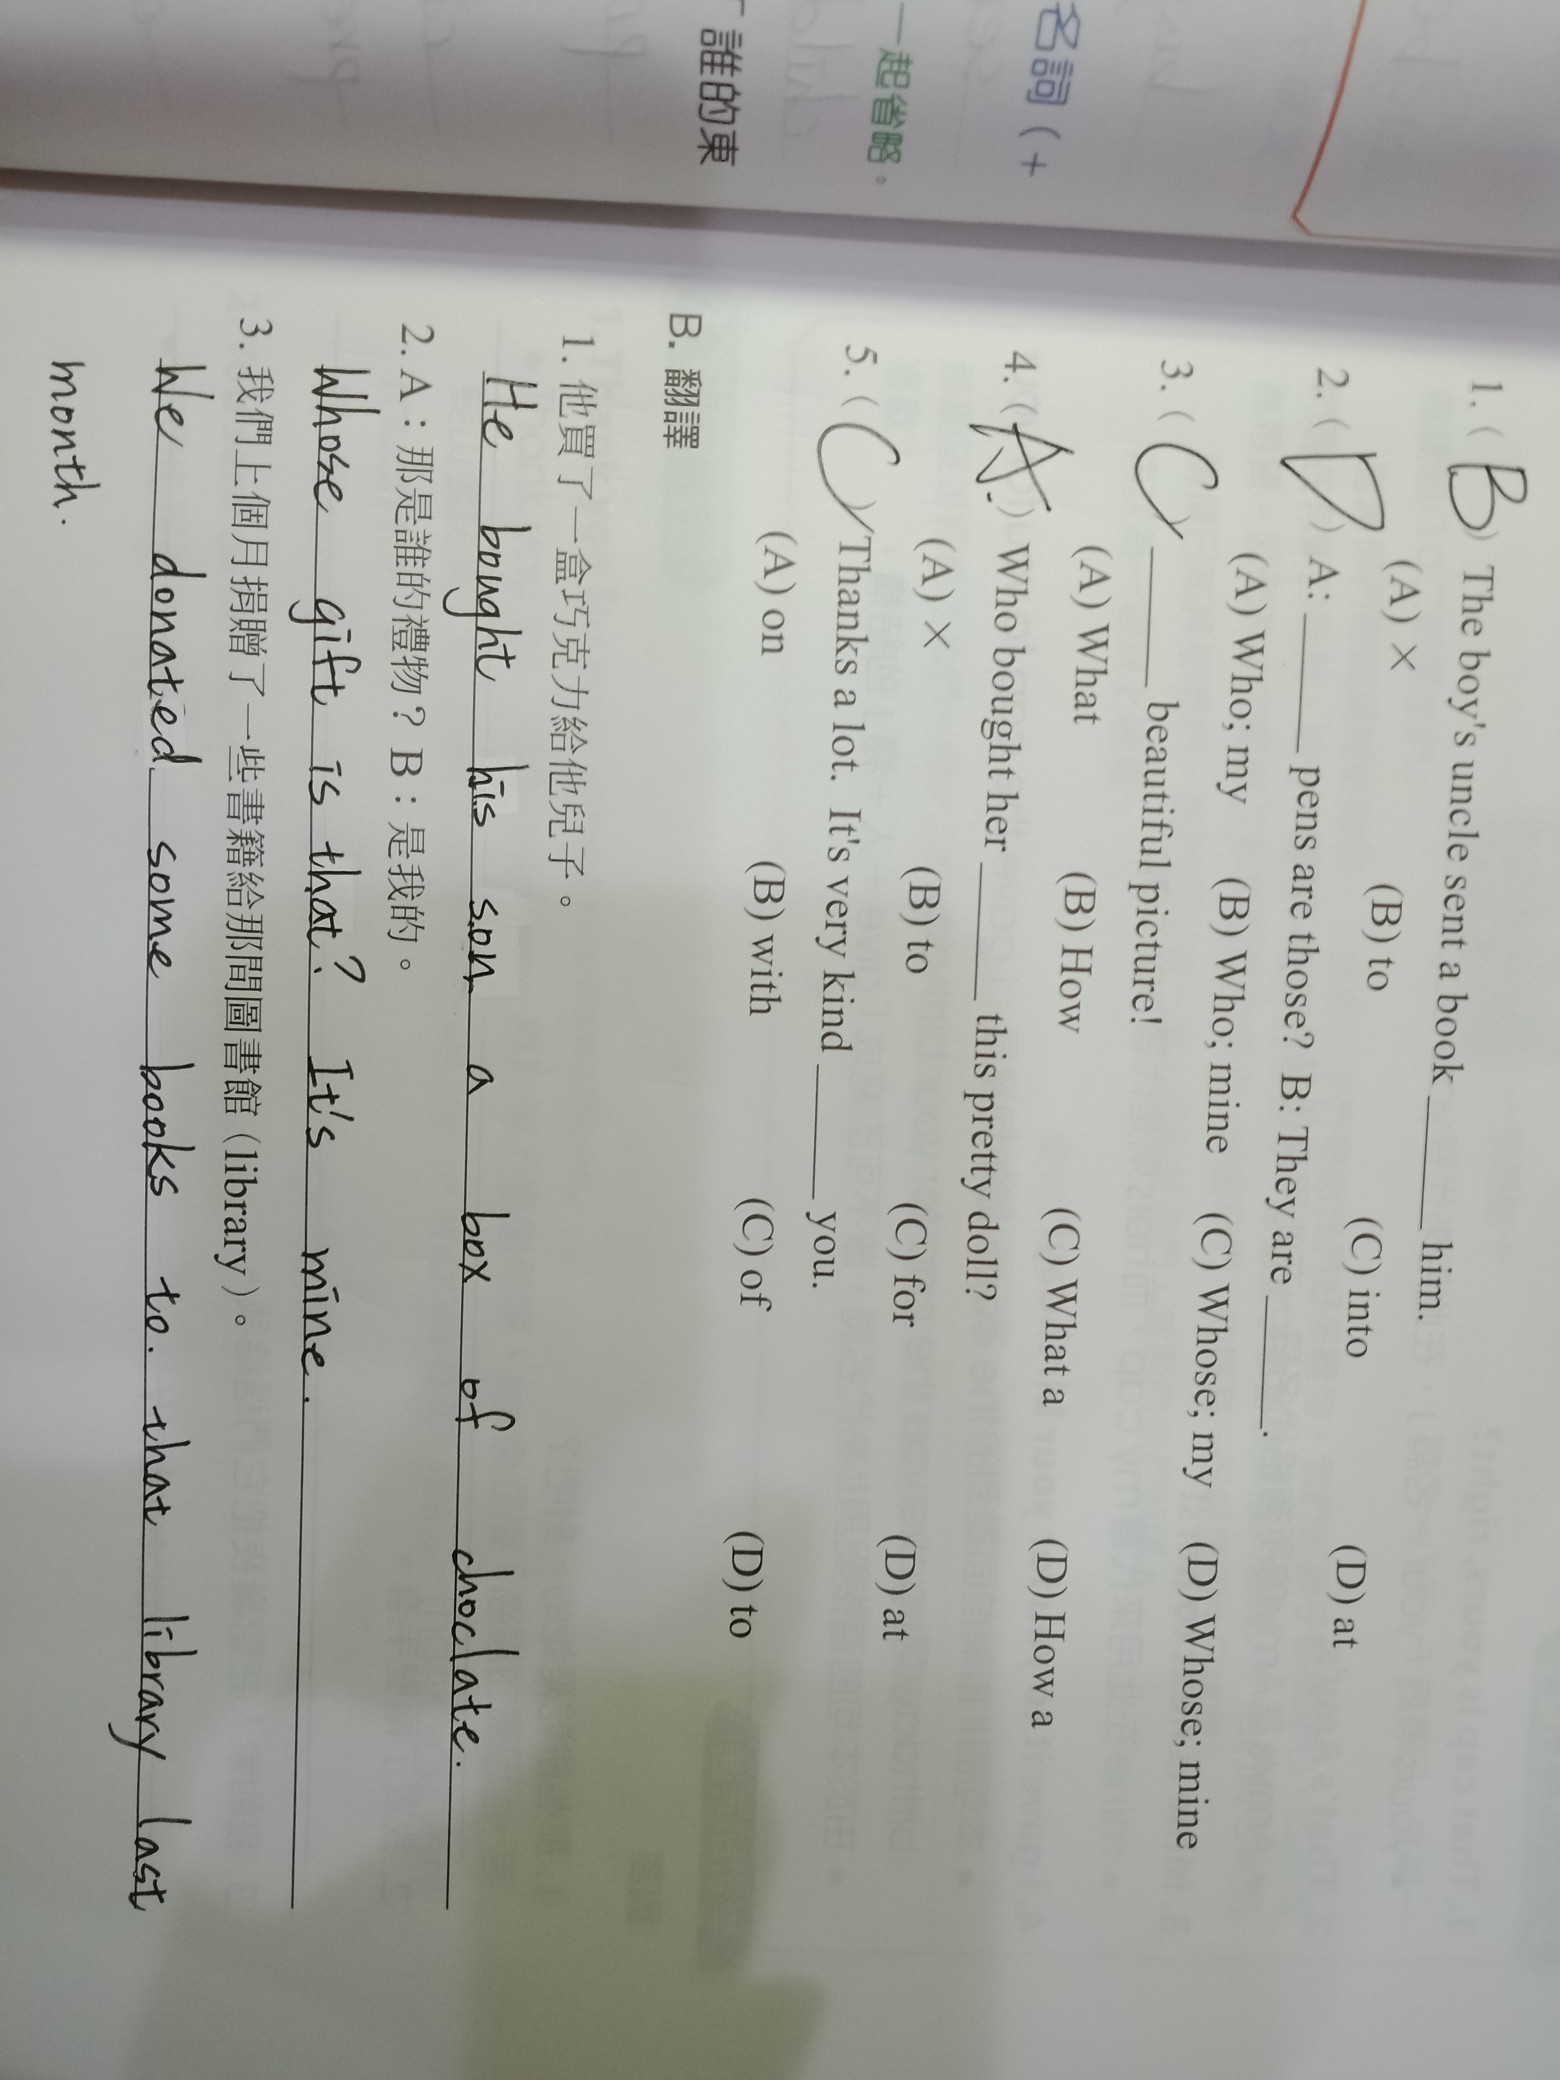 名詞(+
一起省略。
「誰的東
1. (B) The boy's uncle sent a book ______ him.
(A) × (B) to (C) into (D) at
2. (D) A: ______ pens are those? B: They are ______.
(A) Who; my (B) Who; mine (C) Whose; my (D) Whose; mine
3. (C) ______ beautiful picture!
(A) What (B) How (C) What a (D) How a
4. (A) Who bought her ______ this pretty doll?
(A) × (B) to (C) for (D) at
5. (C) Thanks a lot. It's very kind ______ you.
(A) on (B) with (C) of (D) to
B. 翻譯
1. 他買了一盒巧克力給他兒子。
He bought his son a box of choclate.
2. A:那是誰的禮物? B:是我的。
Whose gift is that? It's mine.
3. 我們上個月捐贈了一些書籍給那間圖書館(library)。
We donated some books to that library last
month.